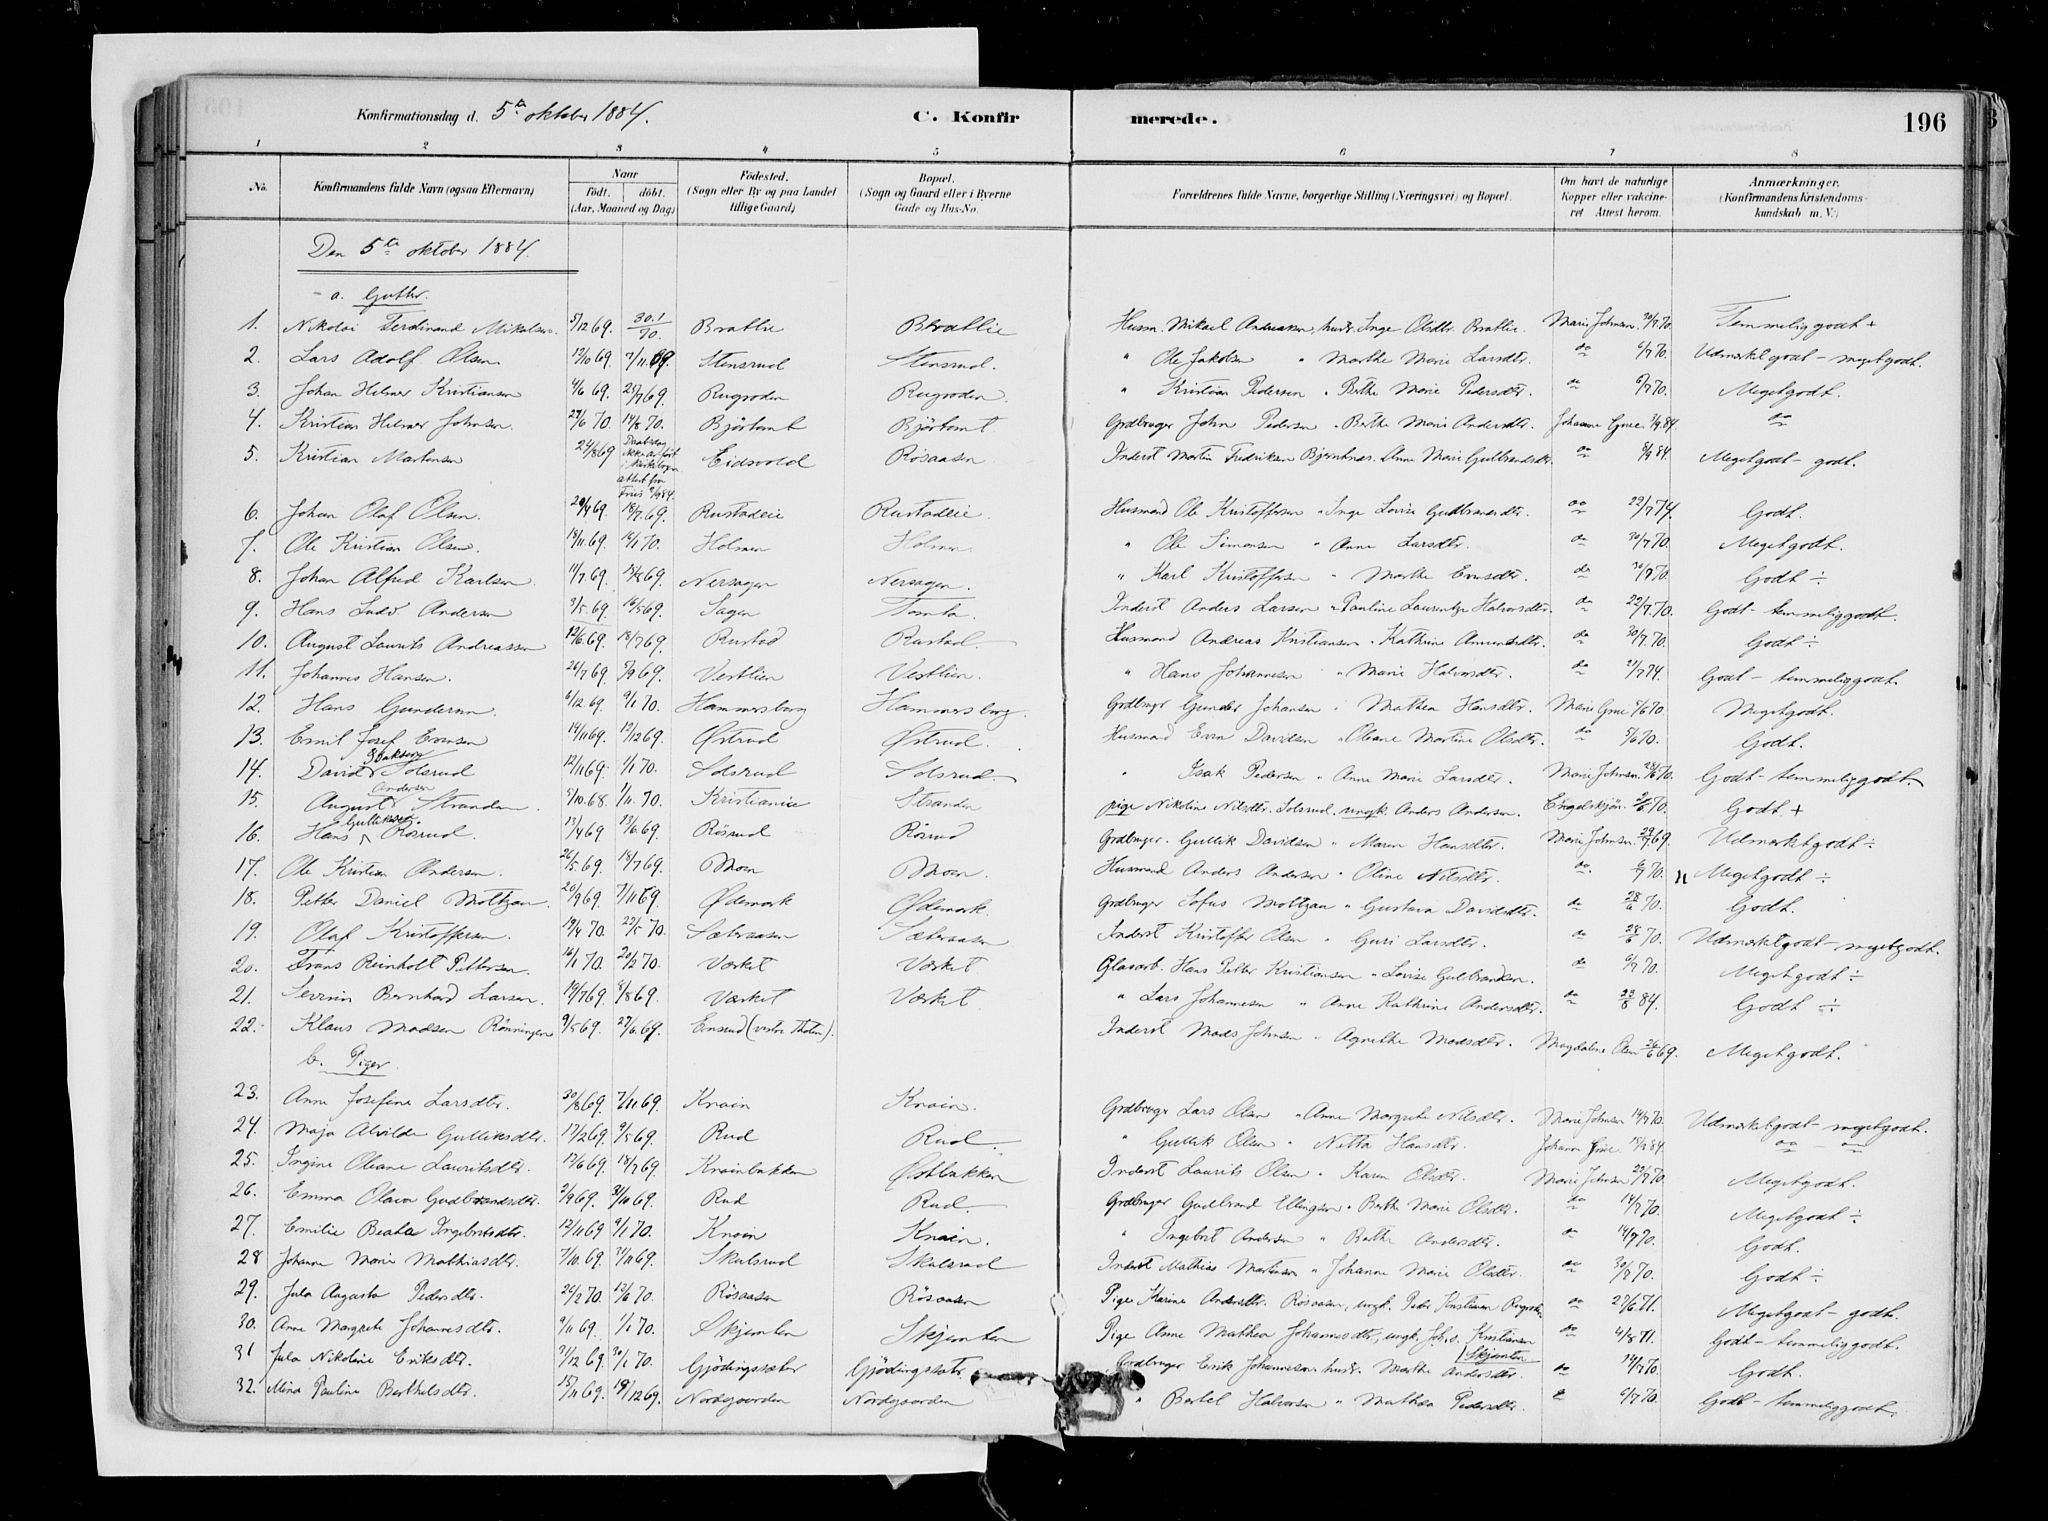 Konfirmationsdag d. 5te oktober 1884. C. Konfirmerede. 196
1 2 3 4 5 6 7 8
No. Konfirmandens fulde Navn (ogsaa Efternavn) Naar født. døbt. (Aar, Maaned og Dag) Fødested. (Sogn eller By og paa Landet tillige Gaard) Bopæl. (Sogn og Gaard eller i Byerne Gade og Hus-No. Forældrenes fulde Navne, borgerlige Stilling (Næringsvei) og Bopæl. Om havt de naturlige Kopper eller vakcineret Attest herom. Anmærkninger. (Konfirmandens Kristendomskundskab m. V.)
Den 5te oktober 1884.
a. Gutter.
1. Nikolai Ferdinand Mikalsen. 5/12 69. 30.1/70. Bratlie Bratlie Husm. Mikael Andreassen, hustr. Inge Olsdtr. Bratlie. Marie Johnsen 30/7 70. Temmelig godt +
2. Lars Adolf Olsen 13/10 69. 7/11.69. Stensrud Stensrud. " Ole Jakobsen " Marthe Marie Larsdtr. do 6/7 70. Udmærket godt - megetgodt.
3. Johan Helmer Kristiansen 4/6 69. 25/7 69. Rugroden Rugroden. " Kristian Pedersen " Berthe Marie Pedersdtr. do 6/7 70. Megetgodt.
4. Kristian Helmer Johnsen. 27/6 70. 14/8 70. Björtomt Björtomt Grdbruger John Pedersen " Berthe Marie Andersdtr. Johanne 3/9.84. do
5. Kristian Martensen 24/8 69 Daabsdag ikke anført i Kirkebogen attest fra Eidsvold Rösaasen Inderst Martin Fredriksen Anne Marie Gulbrandsdtr. do 8/9 84. Megetgodt - godt.
6. Johan Olaf Olsen. 29/4 69. 18/7.69. Rustadeie Rustadeie. Husmand Ole Kristoffersen " Inge Lovise Gudbrandsdtr. do 22/7 74. Godt.
7. Ole Kristian Olsen. 18/11.69. 16/1 70. Holmen Holmen. " Ole Simensen " Anne Larsdtr. do 30/7 70. Megetgodt.
8. Johan Alfred Karlsen. 11/7.69. 15/8 69. Nersagen Nersagen. " Karl Kristoffersen " Marthe Evensdtr. do 30/7 70. Godt ÷
9. Hans Ludv. Andersen 3/5.69. 16/5 69. Sagen Tomta Inderst Anders Larsen " Pauline Laurentze Halvorsdtr. do 22/7.70. Godt - temmeliggodt.
10. August Laurits Andreassen 12/6.69. 18/7 69. Rustad Rustad. Husmand Andreas Kristiansen " Kathrine Amundsdtr. do 30/7.70. Godt ÷
11. Johannes Hansen. 26/7 69. 5/9 69. Vestlien Vestlien. " Hans Johannesen " Marie Halvorsdtr. do 21/7 74. Godt - temmeliggodt.
12. Hans Gundersen. 6/12 69. 9/1 70. Hammersborg Hammersborg. Grdbruger Gunder Johansen " Mathea Hansdtr. Marie 5/6 70. Megetgodt.
13. Emil Josef Evensen 14/11 69. 12/12 69. Østrud Østrud. Husmand Even Davidsen " Oleane Martine Olsdtr. do 5/6 70. Godt.
14. David Isaksen Solsrud 12/11 69. 1/1 70. Solsrud Solsrud. " Isak Pedersen " Anne Marie Larsdtr. Marie Johnsen 28/6 70. Godt - temmeliggodt.
15. August Andersen Stranden. 5/10.68. 1/11.70. Kristiania Stranden pige Nikoline Nilsdtr. Solsrud, ungk. Anders Andersen. Engelskjön 2/6 70. Godt +
16. Hans Gulliksen Rösrud. 13/4 69 13/6.69. Rösrud Rösrud Grdbruger. Gullik Davidsen " Maren Hansdtr. Marie Johnsen. 29/7 69. Udmærketgodt ÷
17. Ole Kristian Andersen. 26/5.69. 18/7 69. Moen Moen. Husmand Anders Andersen " Oline Nilsdtr. do. 6/7 70. Megetgodt ÷
18. Petter Daniel Moltzau. 20/9 69. 7/11 69. Ødemark Ødemark. Grdbruger Sofus Moltzau " Gustava Davidsdtr. do 28/6 70. Godt.
19. Olaf Kristoffersen. 19/4 70. 22/5 70. Sætersaasen Sætersaasen Inderst Kristoffer Olsen " Guri Larsdtr. do 28/6 70. Udmærketgodt - megetgodt.
20. Frans Reinholt Pettersen. 16/1 70. 20/2 70. Værket Værket Glasarb. Hans Petter Kristiansen " Lovise Gulbrandsen. do 6/7 70. Megetgodt ÷
21. Severin Bernhard Larsen. 19/7 69. 8/8 69. Værket Værket " Lars Johannesen " Anne Kathrine Andersdtr. do 23/8 84. Godt ÷
22. Klaus Madsen Rönningen 9/5 69. 27/6.69. Ensrud (vestre Thoten). Inderst Mads Johnsen " Agnethe Madsdtr. Magdalene Olsen 26/6 69. Megetgodt.
b. Piger.
23. Anne Josefine Larsdtr. 30/8 69. 7/11 69. Knain Knain. Grdbruger Lars Olsen " Anne Margrete Nilsdtr. Marie Johnsen 14/7 70. Udmærketgodt - megetgodt.
24. Maja Alvilde Gulliksdtr. 17/2 69. 9/5 69. Rud Rud. " Gullik Olsen " Netta Hansdtr. Johanne 15/9 84. do - do
25. Ingine Oleane Lauritsdtr. 12/6 69. 18/7 69. Knainbakken Østbakken Inderst Laurits Olsen " Karen Olsdtr. Marie Johnsen 22/7 70. Megetgodt.
26. Emma Olava Gudbrandsdtr. 2/9 69. 31/10 69. Rud Rud. Grdbruger Gudbrand Ellingsen " Berthe Marie Olsdtr. do 14/7 70. Megetgodt ÷
27. Emilie Beathe Ingebretsdtr. 12/11 69 9/1 70. Knain Knain. " Ingebret Andersen " Berthe Andersdtr. do 14/7 70. Godt.
28 Johanne Marie Mathiasdtr. 7/10.69. 21/11 69. Skulsrud Skulsrud Inderst Mathias Martinsen " Johanne Marie Olsdtr. do 30/7 70. Godt ÷
29. Jula Augusta Pedersdtr. 26/2 70. 12/6 70. Rösaasen Rösaasen Pige Karine Andersdtr. Rösaasen, ungk. Peder Kristiansen Rugroden do 27/6 71. Megetgodt - godt.
30. Anne Margrete Johannesdtr. 9/11 69. 1/1 70. Skjemten Skjemten Pige Anne Mathea Johannesdtr, ungk. Johs. Kristiansen Skjemten do 4/8 71. Godt - temmeliggodt.
31 Jula Nikoline Eriksdtr. 31/12 69. 30/1 70. Gjödingsæter Gjödingsæter. Grdbruger Erik Johannesen, hustr. Marthe Andersdtr. do 14/7 70. Godt.
32. Mina Pauline Berthelsdtr. 15/11 69. 19/12 69. Nordgaarden Nordgaarden " Bertel Halvorsen " Mathea Pedersdtr. do 6/7 70. Godt - temmeliggodt.